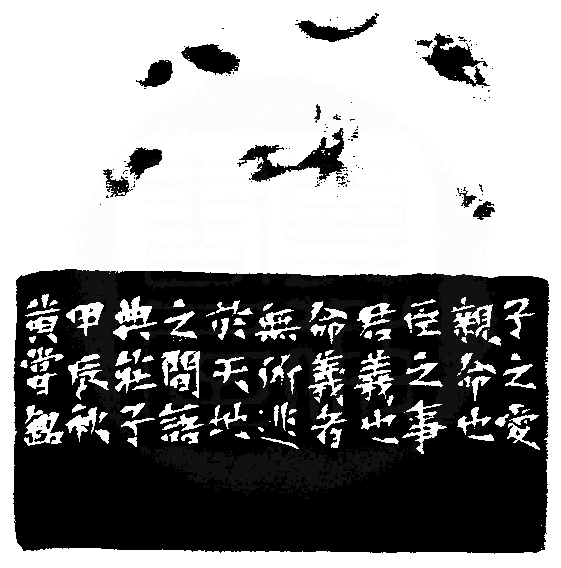 子之愛
親命也
臣之事
君義也
命義者
無所逃
於天地
之間語
典莊子
甲辰秋
黃嘗銘